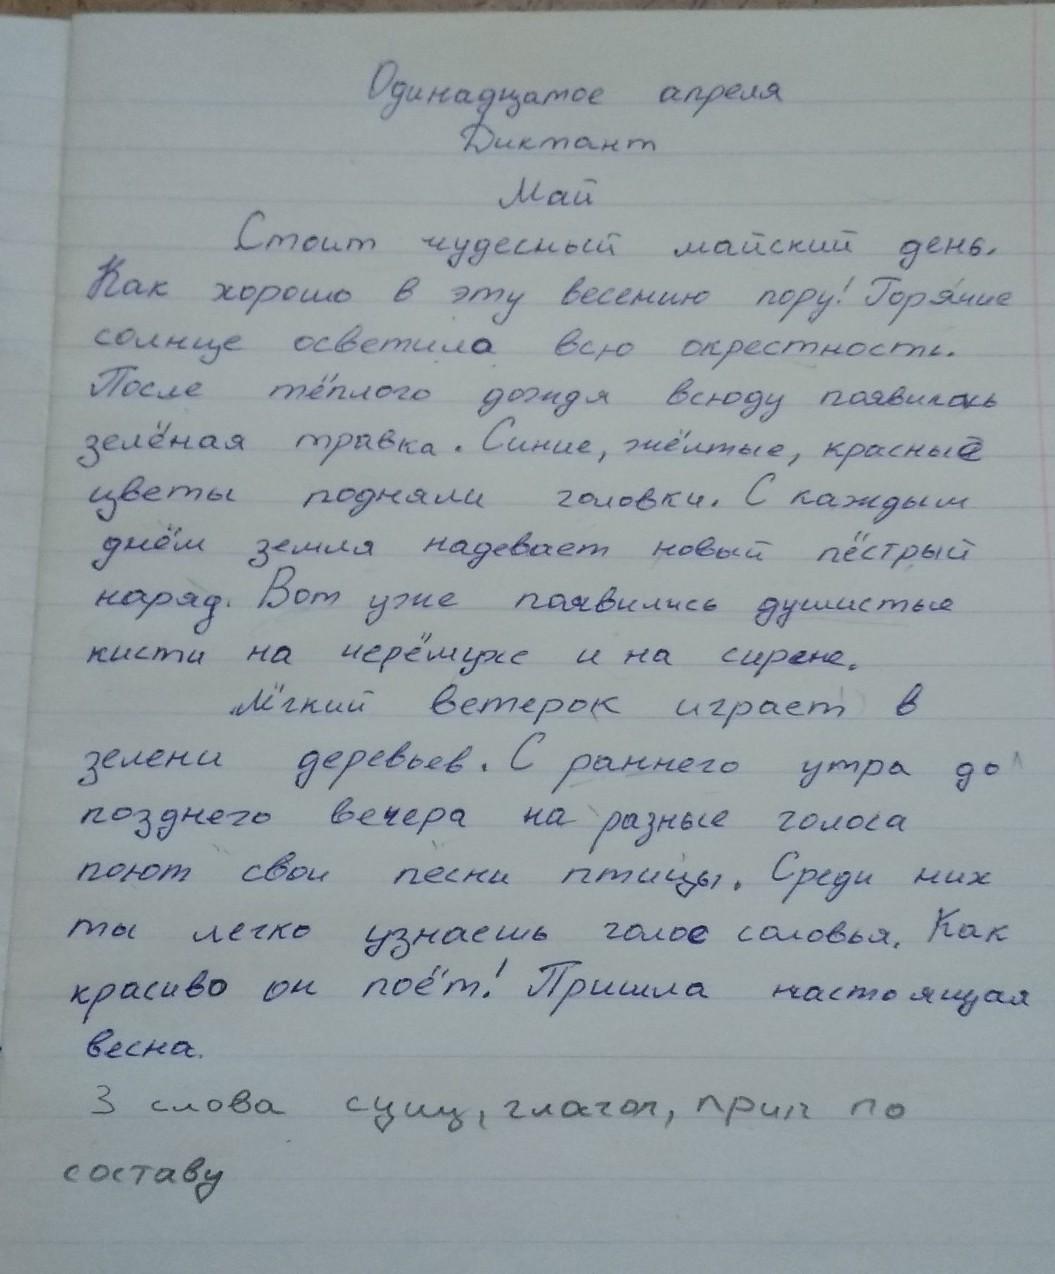 Одинадцатое апреля
Диктант
Май
Стоит чудесный майский день.
Как хорошо в эту весению пору! Горячие
солнце осветила всю окрестность.
После тёплого дождя всюду появилась
зелёная травка. Синие, жёлтые, красные
цветы подняли головки. С каждым
днём земля надевает новый пёстрый
наряд. Вот уже появились душистые
кисти на черёмухе и на сирене.
Лёгкий ветерок играет в
зелени деревьев. С раннего утра до
позднего вечера на разные голоса
поют свои песни птицы. Среди них
ты легко узнаешь голос соловья. Как
красиво он поёт! Пришла настоящая
весна.
3 слова сущ, глагол, прил по
составу